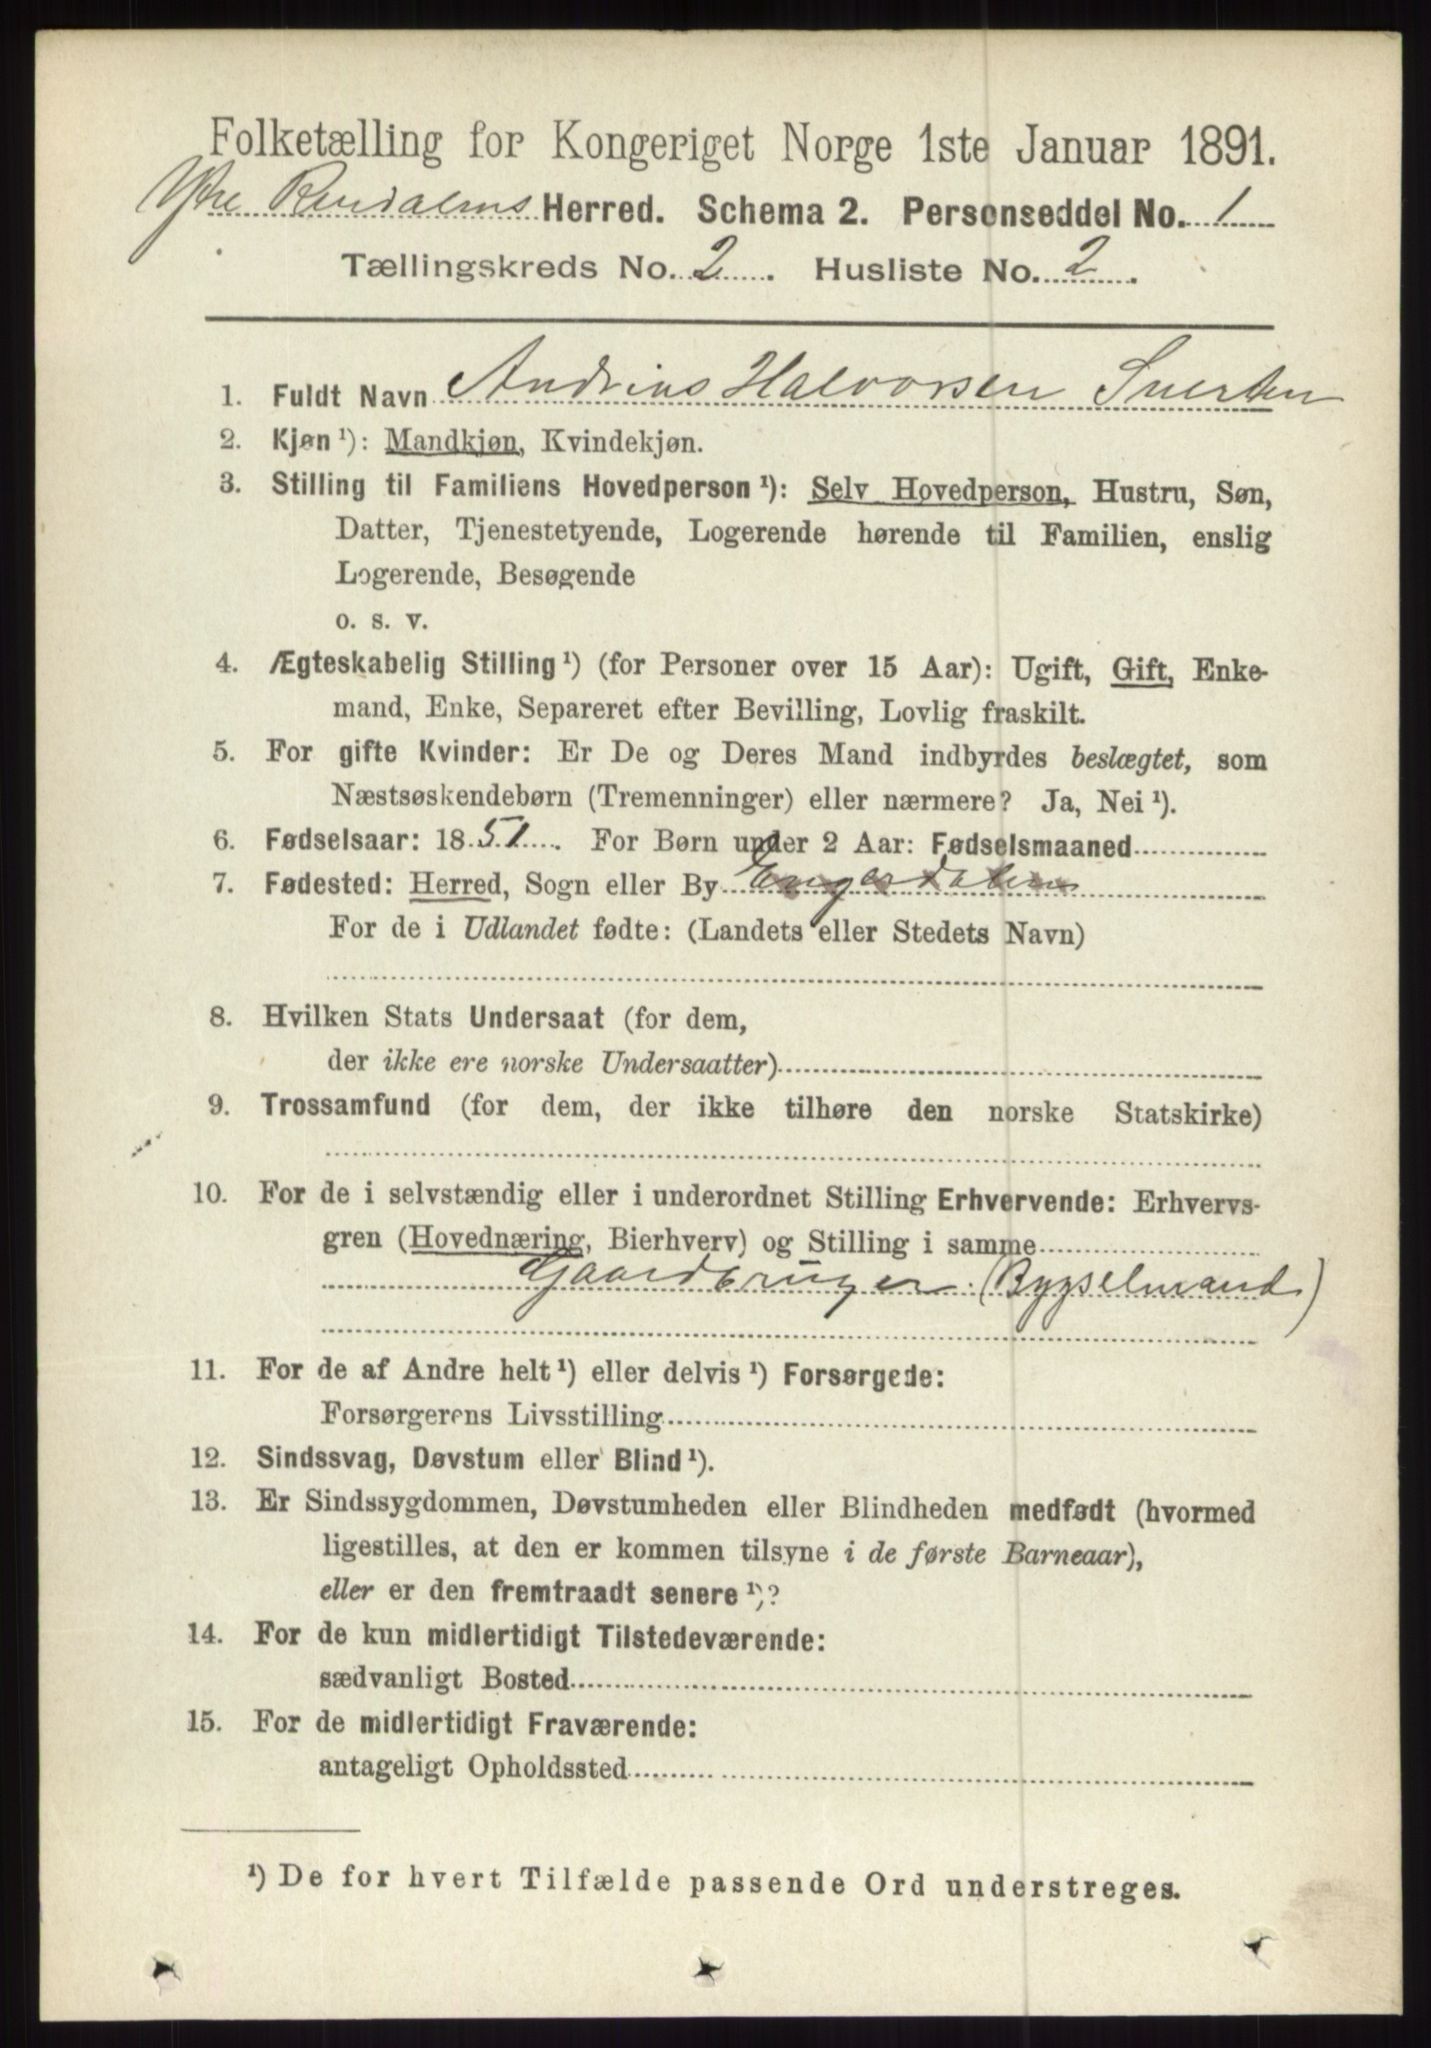 Folketælling for Kongeriget Norge 1ste Januar 1891.
Ytre Rendalens Herred. Schema 2. Personseddel No. 1
Tællingskreds No. 2. Husliste No. 2.
1. Fuldt Navn Andrius Halvorsen
2. Kjøn ¹): Mandkjøn, Kvindekjøn.
3. Stilling til Familiens Hovedperson ¹): Selv Hovedperson, Hustru, Søn,
Datter, Tjenestetyende, Logerende hørende til Familien, enslig
Logerende, Besøgende
o. s. v.
4. Ægteskabelig Stilling ¹) (for Personer over 15 Aar): Ugift, Gift, Enke-
mand, Enke, Separeret efter Bevilling, Lovlig fraskilt.
5. For gifte Kvinder: Er De og Deres Mand indbyrdes beslægtet, som
Næstsøskendebørn (Tremenninger) eller nærmere? Ja, Nei ¹).
6. Fødselsaar: 1851. For Børn under 2 Aar: Fødselsmaaned
7. Fødested: Herred, Sogn eller By Engerdalen
For de i Udlandet fødte: (Landets eller Stedets Navn)
8. Hvilken Stats Undersaat (for dem,
der ikke ere norske Undersaatter)
9. Trossamfund (for dem, der ikke tilhøre den norske Statskirke)
10. For de i selvstændig eller i underordnet Stilling Erhvervende: Erhvervs-
gren (Hovednæring, Bierhverv) og Stilling i samme
Gaardbruger (Bygselmand)
11. For de af Andre helt ¹) eller delvis ¹) Forsørgede:
Forsørgerens Livsstilling
12. Sindssvag, Døvstum eller Blind ¹).
13. Er Sindssygdommen, Døvstumheden eller Blindheden medfødt (hvormed
ligestilles, at den er kommen tilsyne i de første Barneaar),
eller er den fremtraadt senere ¹)?
14. For de kun midlertidigt Tilstedeværende:
sædvanligt Bosted
15. For de midlertidigt Fraværende:
antageligt Opholdssted
¹) De for hvert Tilfælde passende Ord understreges.